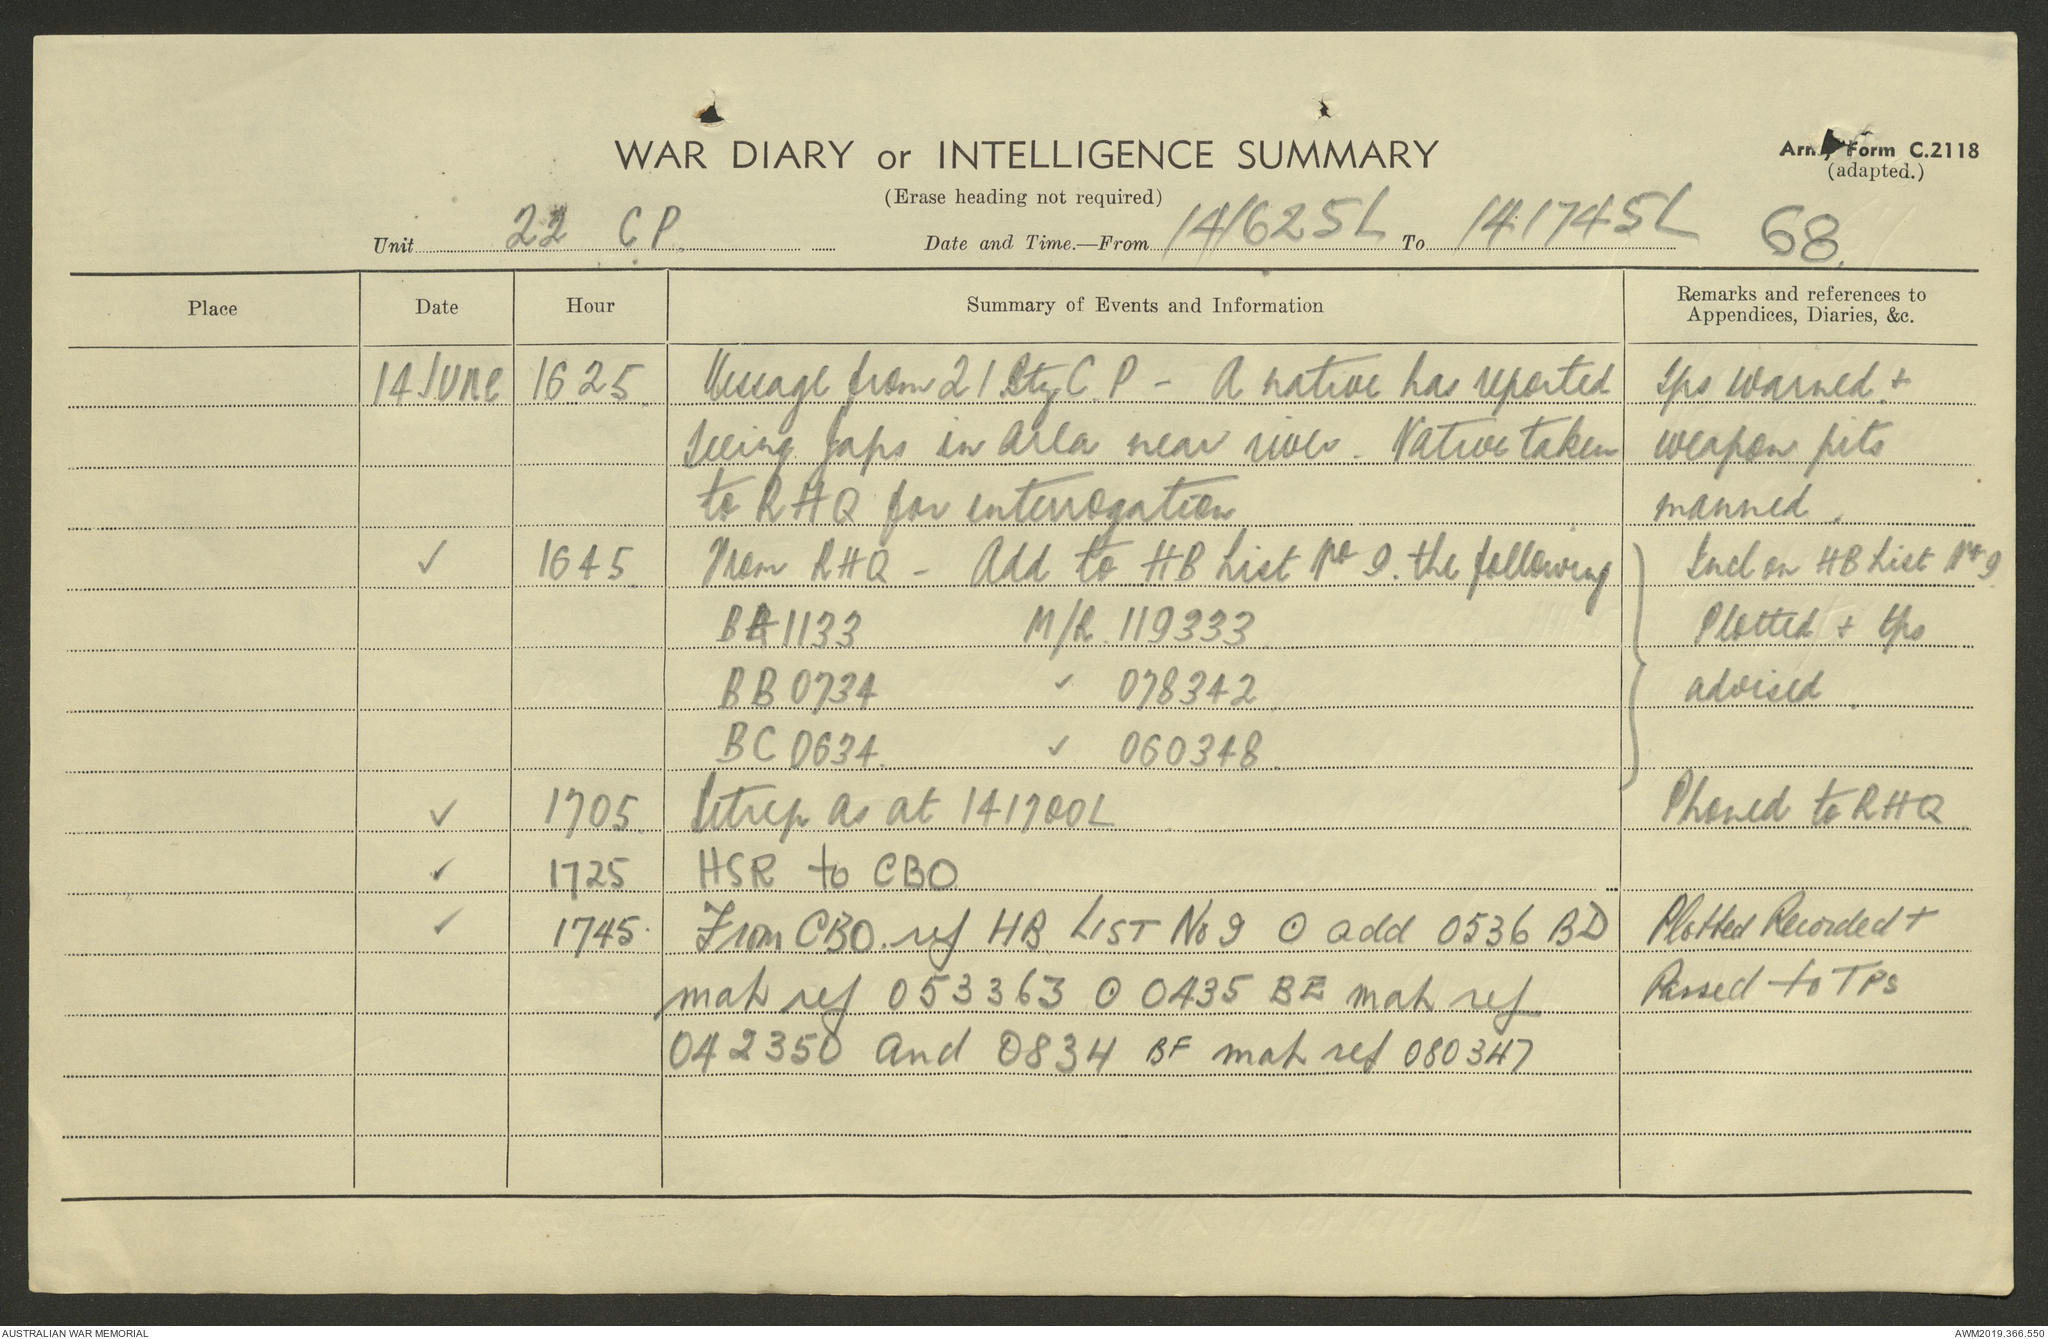 WAR DIARY or INTELLIGENCE SUMMARY
Army Form C.2118
(adapted.)
(Erase heading not required)
Unit 22 CP. Date and Time.—From 141625L To 141745L 68.
Place Date Hour Summary of Events and Information Remarks and references to
Appendices, Diaries, &c.
14 June 1625 Message from 21 Bty C.P – A native has reported tps warned +
seeing Japs in area near river. Native taken weapon pits
to RHQ for interrogation manned.
✓ 1645 From RHQ – Add to HB List No 9. the following Incl on HB List No 9
BA 1133 M/R 119333 Plotted + tps
BB 0734 ✓ 078342 advised.
BC 0634 ✓ 060348
✓ 1705 Sitrep as at 141700L Phoned to RHQ
✓ 1725 HSR to CBO
✓ 1745. From CBO. ref HB LIST No 9 ⊙ add 0536 BD Plotted Recorded +
map ref 053363 ⊙ 0435 BE map ref Passed to TPs
042350 and 0834 BF map ref 080347
AUSTRALIAN WAR MEMORIAL AWM2019.366.550